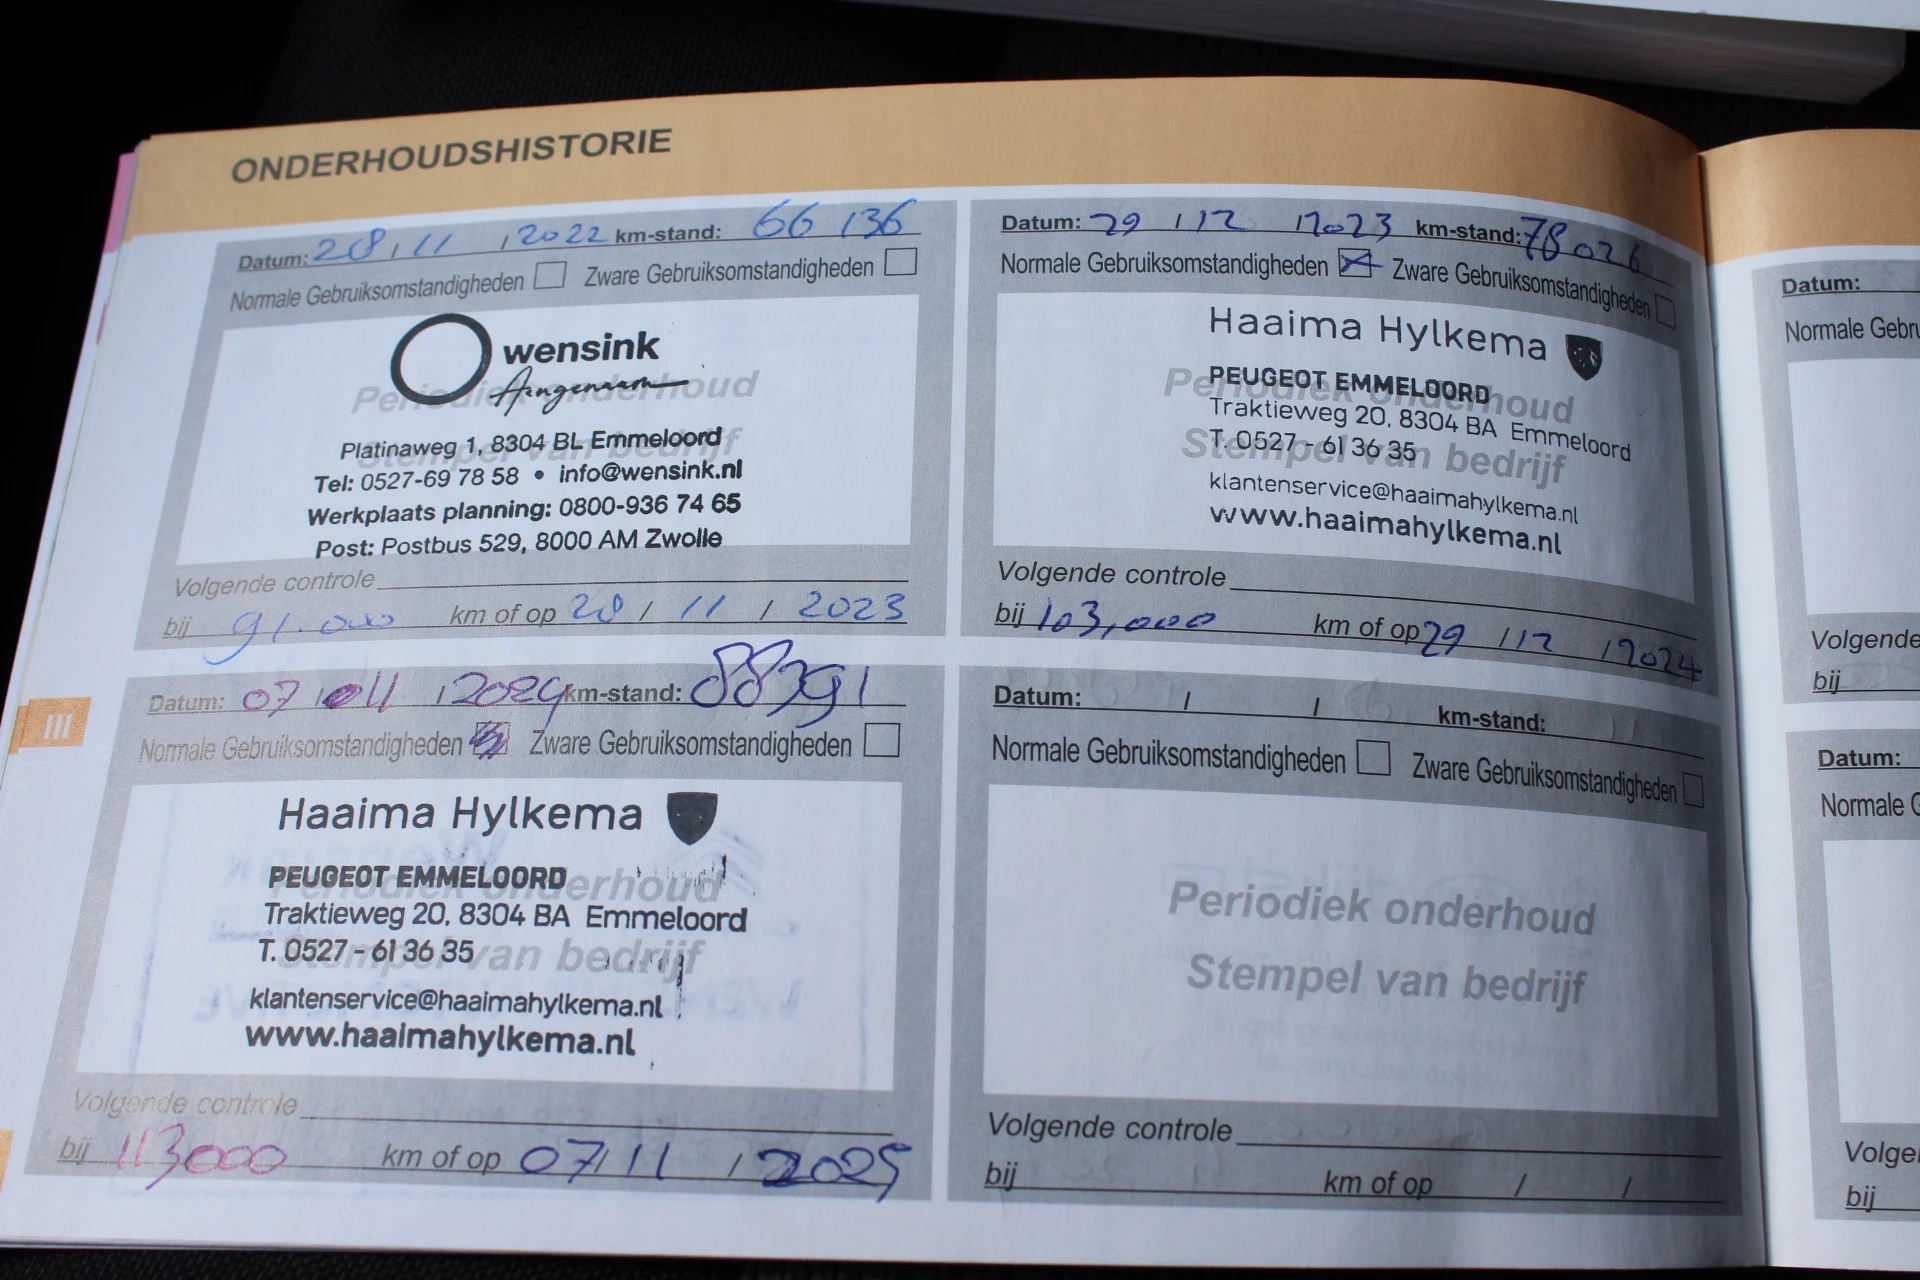 ONDERHOUDSHISTORIE
Datum: 28 / 11 / 2022 km-stand: 66 136
Normale Gebruiksomstandigheden Zware Gebruiksomstandigheden
wensink
Aangenaam
Periodiek onderhoud
Stempel van bedrijf
Platinaweg 1, 8304 BL Emmeloord
Tel: 0527-69 78 58 • info@wensink.nl
Werkplaats planning: 0800-936 74 65
Post: Postbus 529, 8000 AM Zwolle
Volgende controle
bij 91.000 km of op 28 / 11 / 2023
Datum: 29 / 12 / 2023 km-stand: 78026
Normale Gebruiksomstandigheden Zware Gebruiksomstandigheden
Haaima Hylkema
PEUGEOT EMMELOORD
Periodiek onderhoud
Traktieweg 20, 8304 BA Emmeloord
T. 0527 - 61 36 35
Stempel van bedrijf
klantenservice@haaimahylkema.nl
www.haaimahylkema.nl
Volgende controle
bij 103,000 km of op 29 / 12 / 2024
III
Datum: 07 / 11 / 2024 km-stand: 88391
Normale Gebruiksomstandigheden Zware Gebruiksomstandigheden
Haaima Hylkema
PEUGEOT EMMELOORD
Periodiek onderhoud
Traktieweg 20, 8304 BA Emmeloord
T. 0527 - 61 36 35
Stempel van bedrijf
klantenservice@haaimahylkema.nl
www.haaimahylkema.nl
Volgende controle
bij 113000 km of op 07 / 11 / 2025
Datum: / / km-stand:
Normale Gebruiksomstandigheden Zware Gebruiksomstandigheden
Periodiek onderhoud
Stempel van bedrijf
Volgende controle
bij km of op / /
Datum:
Normale Gebru
Volgende
bij
Datum:
Normale G
Volge
bij